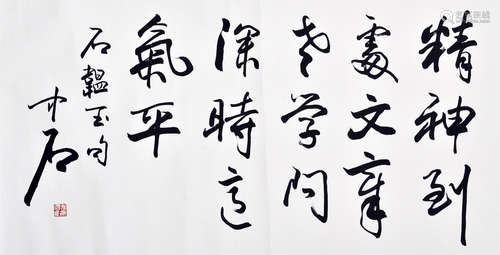 精神到
處文章
老學問
深時意
氣平
石韞玉句
中石